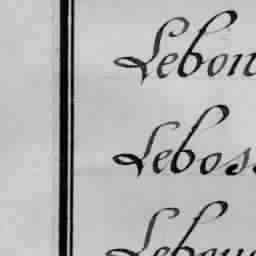 Lebon
Lebos
Lebou